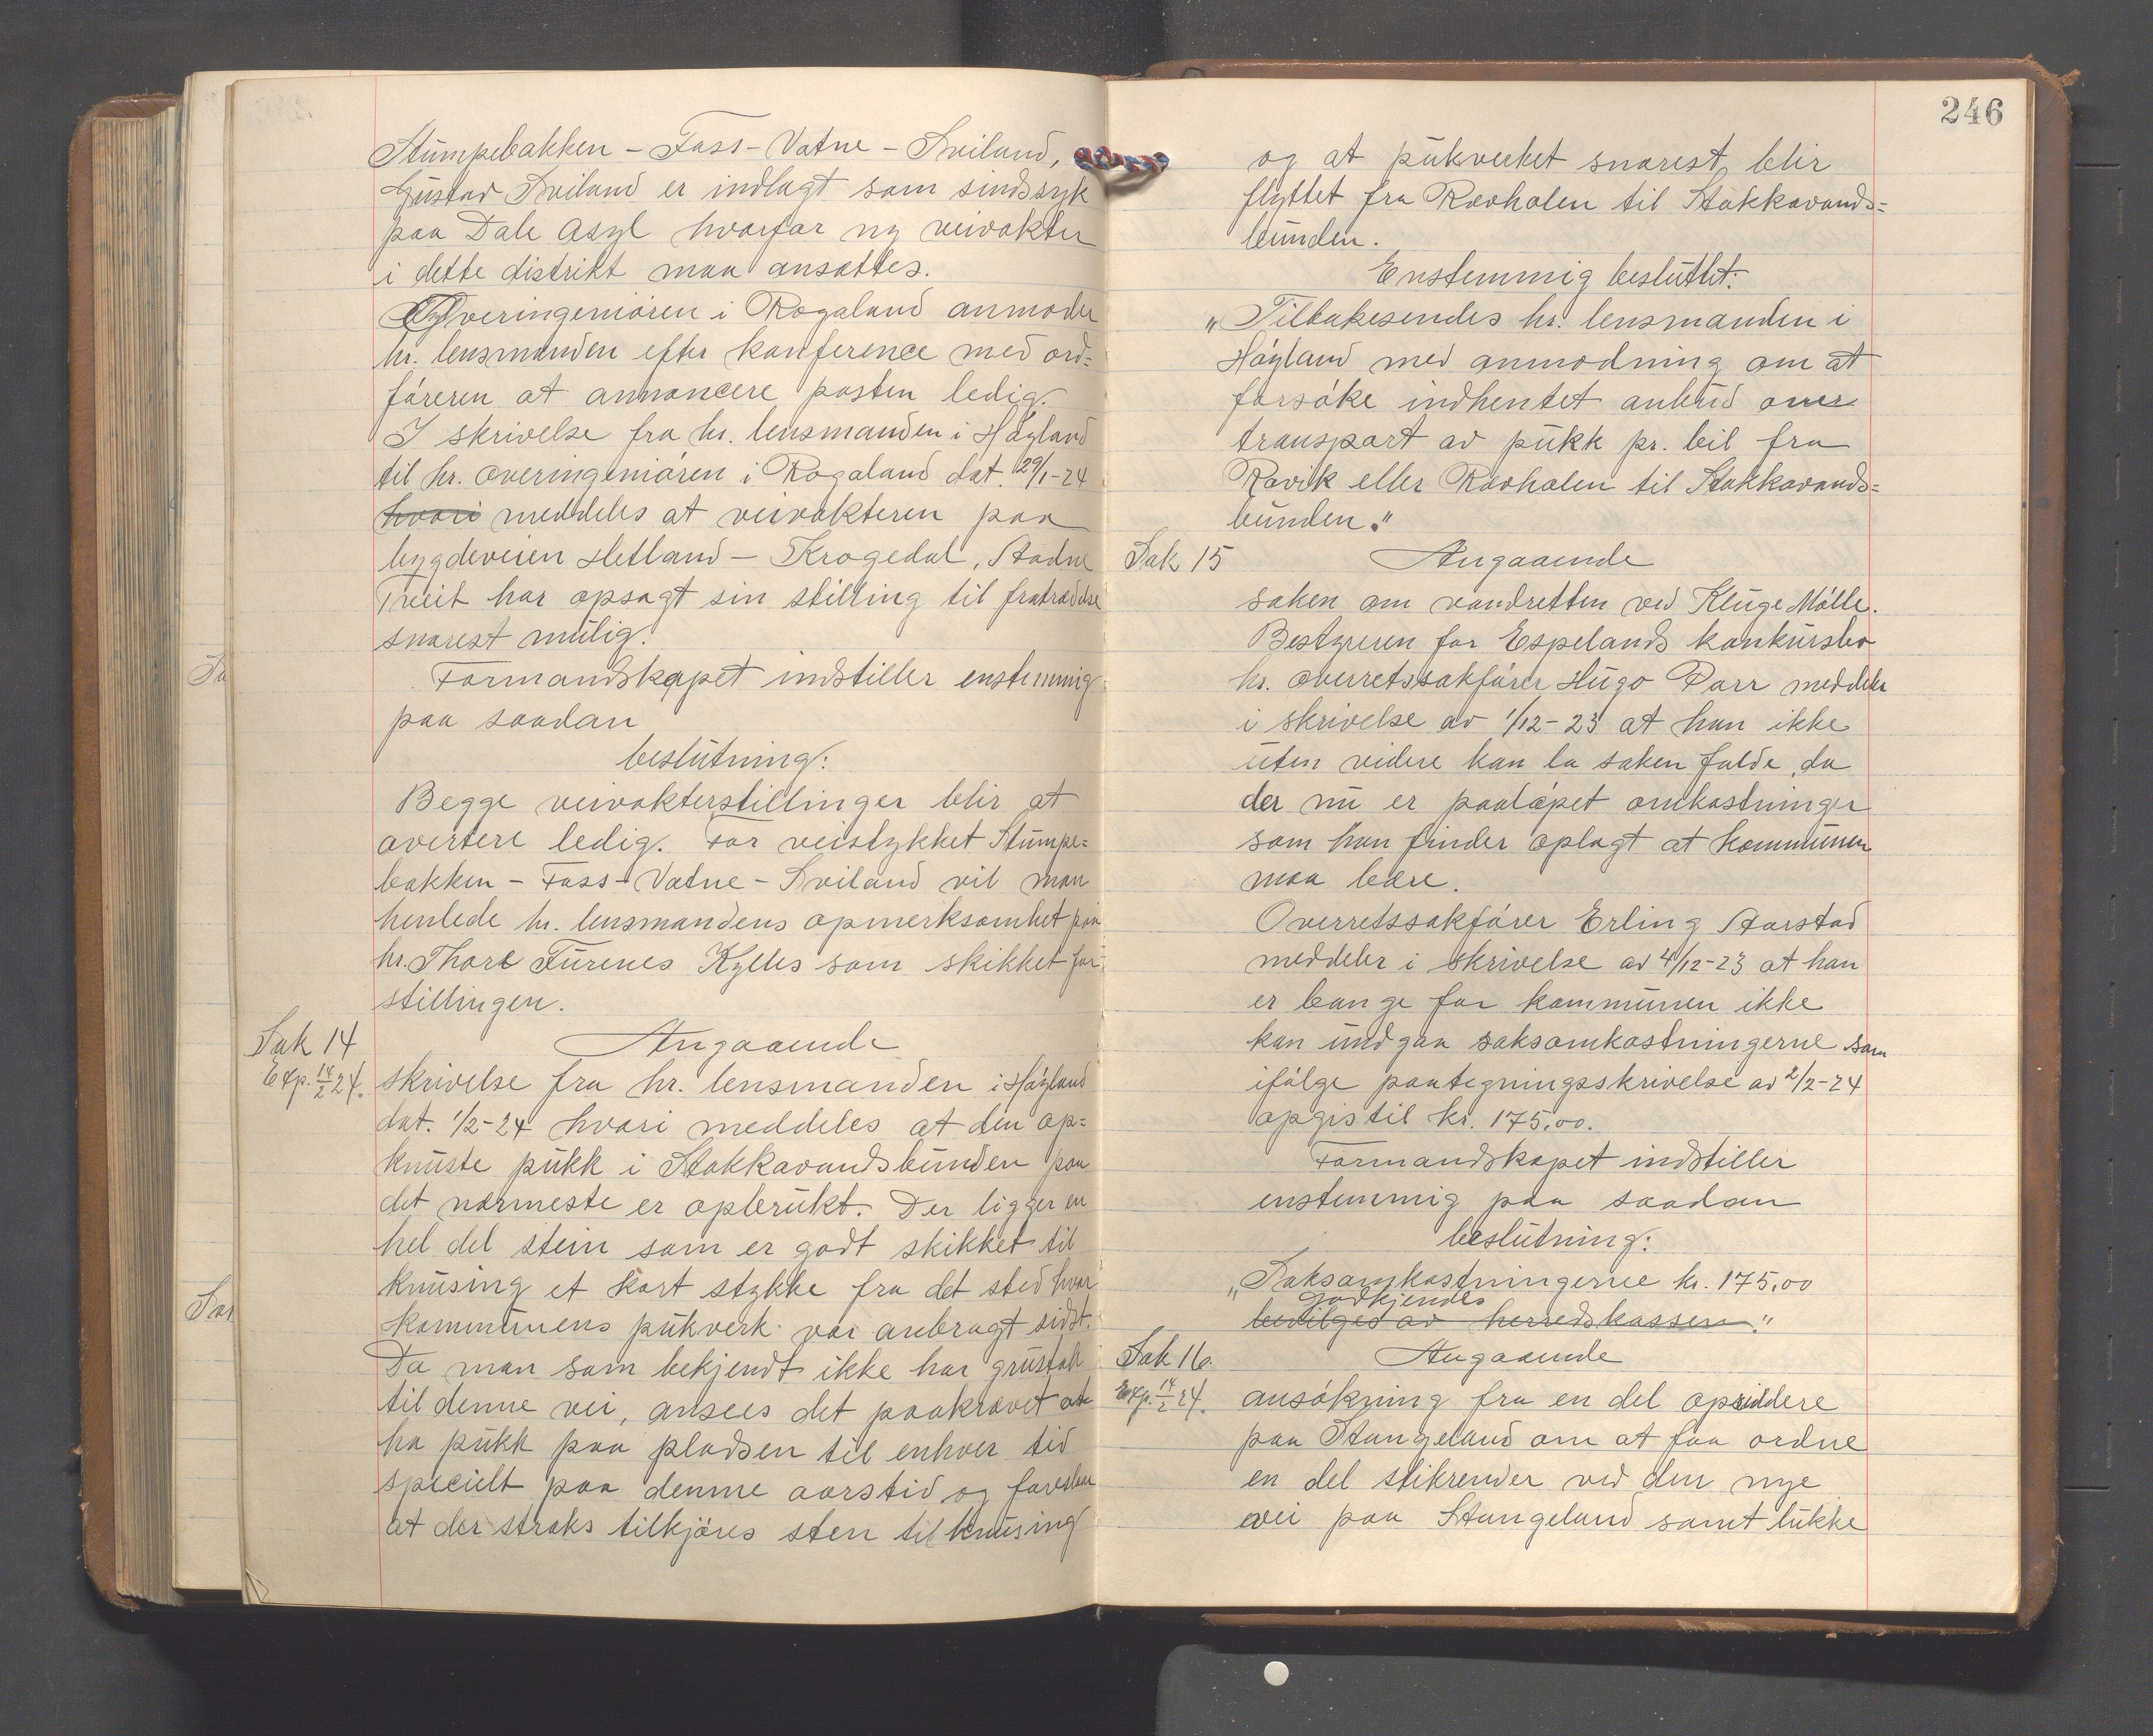 Stumpebakken - Foss - Vatne - Sviland,
Gustav Sviland er indlagt som sindssyk
paa Dale asyl hvorfor ny veivokter
i dette distrikt maa ansættes.
Overingeniøren i Rogaland anmoder
hr. lensmanden efter konference med ord=
føreren at annoncere posten ledig.
I skrivelse fra hr. lensmanden i Høyland
til hr. overingeniøren i Rogaland dat. 29/1-24
hvori meddeles at veivokteren paa
bygdeveien Hetland - Krogedal, Aadne
Tveit har opsagt sin stilling til fratrædelse
snarest mulig.
Formandskapet indstiller enstemmig
paa saadan
beslutning:
Begge veivokterstillinger blir at
avertere ledig. For veistykket Stumpe=
bakken - Foss - Vatne - Sviland vil man
henlede hr. lensmandens opmerksomhet paa
hr. Thore Furenes Kylles som skikket for
stillingen.
Sak 14
Angaaende
Exp. 14/2 24.
skrivelse fra hr. lensmanden i Høyland
dat. 1/2-24 hvori meddeles at den op=
knuste pukk i Stokkavandsbunden paa
det nærmeste er opbrukt. Der ligger en
hel del stein som er godt skikket til
knusing et kort stykke fra det sted hvor
kommunens pukverk var anbragt sidst.
Da man som bekjendt ikke har grustak
til denne vei, ansees det paakrævet at
ha pukk paa pladsen til enhver tid
specielt paa denne aarstid og foreslaar
at der straks tilkjøres sten til knusing
246
og at pukverket snarest blir
flyttet fra Rovholen til Stokkavands=
bunden.
Enstemmig besluttet:
"Tilbakesendes hr. lensmanden i
Høyland med anmodning om at
forsøke indhentet anbud over
transport av pukk pr. bil fra
Rovik eller Rovholen til Stokkavands=
bunden."
Sak 15
Angaaende
saken om vandretten ved Kluge Mølle.
Bestyreren for Espelands konkursbo
hr. overretssakfører Hugo Parr meddeler
i skrivelse av 1/12-23 at han ikke
uten videre kan la saken falde, da
der nu er paaløpet omkostninger
som han finder oplagt at kommunen
maa bære.
Overretssakfører Erling Aarstad
meddeler i skrivelse av 4/12-23 at han
er bange for kommunen ikke
kan undgaa saksomkostningerne som
ifølge paategningsskrivelse av 2/2-24
opgis til kr. 175,00.
Formandskapet indstiller
enstemmig paa saadan
beslutning:
"Saksomkostningerne kr. 175,00
godkjendes
bevilges av herredskassen."
Sak 16.
Angaaende
Exp. 14/2 24.
ansøkning fra en del opsiddere
paa Stangeland om at faa ordne
en del stikrender ved den nye
vei paa Stangeland samt lukke